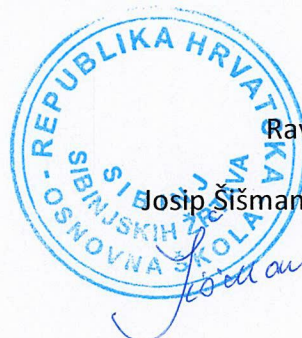 REPUBLIKA HRVATSKA
OSNOVNA ŠKOLA
SIBINJSKIH ŽRTAVA
SIBINJ
Rav
Josip Šišman
Šišman